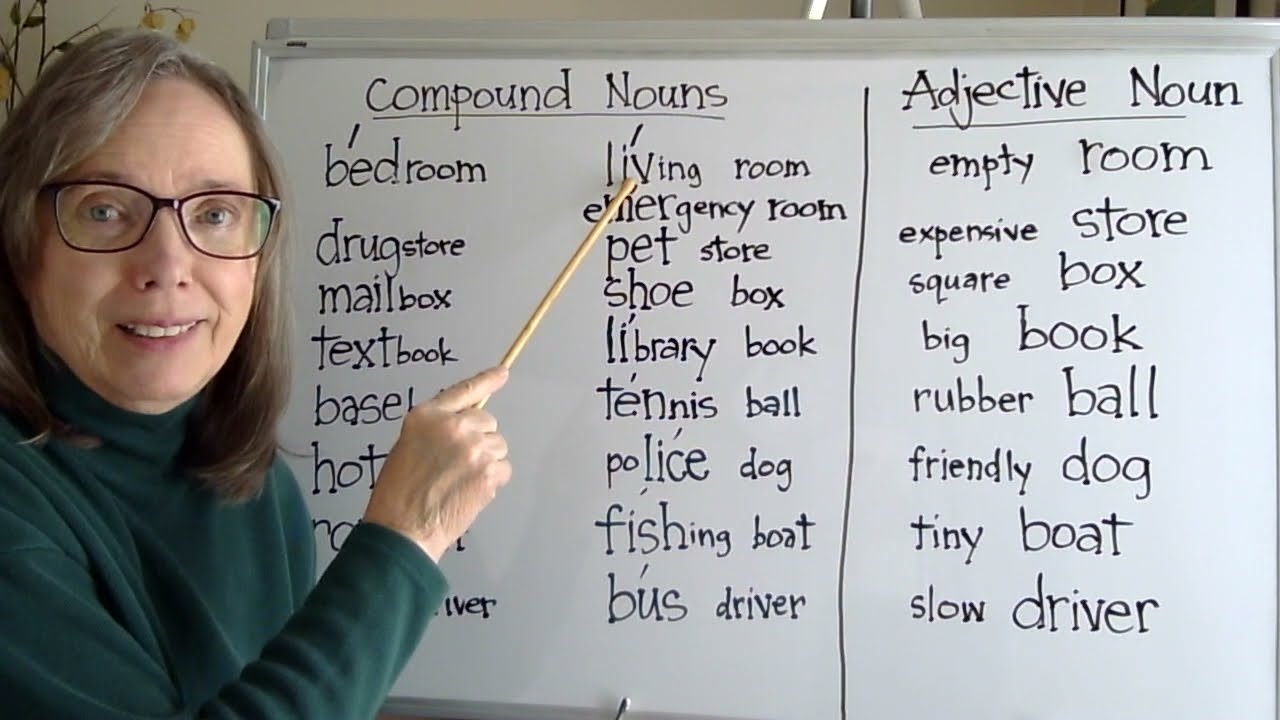 Compound Nouns
Adjective Noun
bédroom
líving room
empty room
emergency room
drugstore
pet store
expensive store
mailbox
shoe box
square box
textbook
líbrary book
big book
ténnis ball
rubber ball
políce dog
friendly dog
físhing boat
tiny boat
bús driver
slow driver